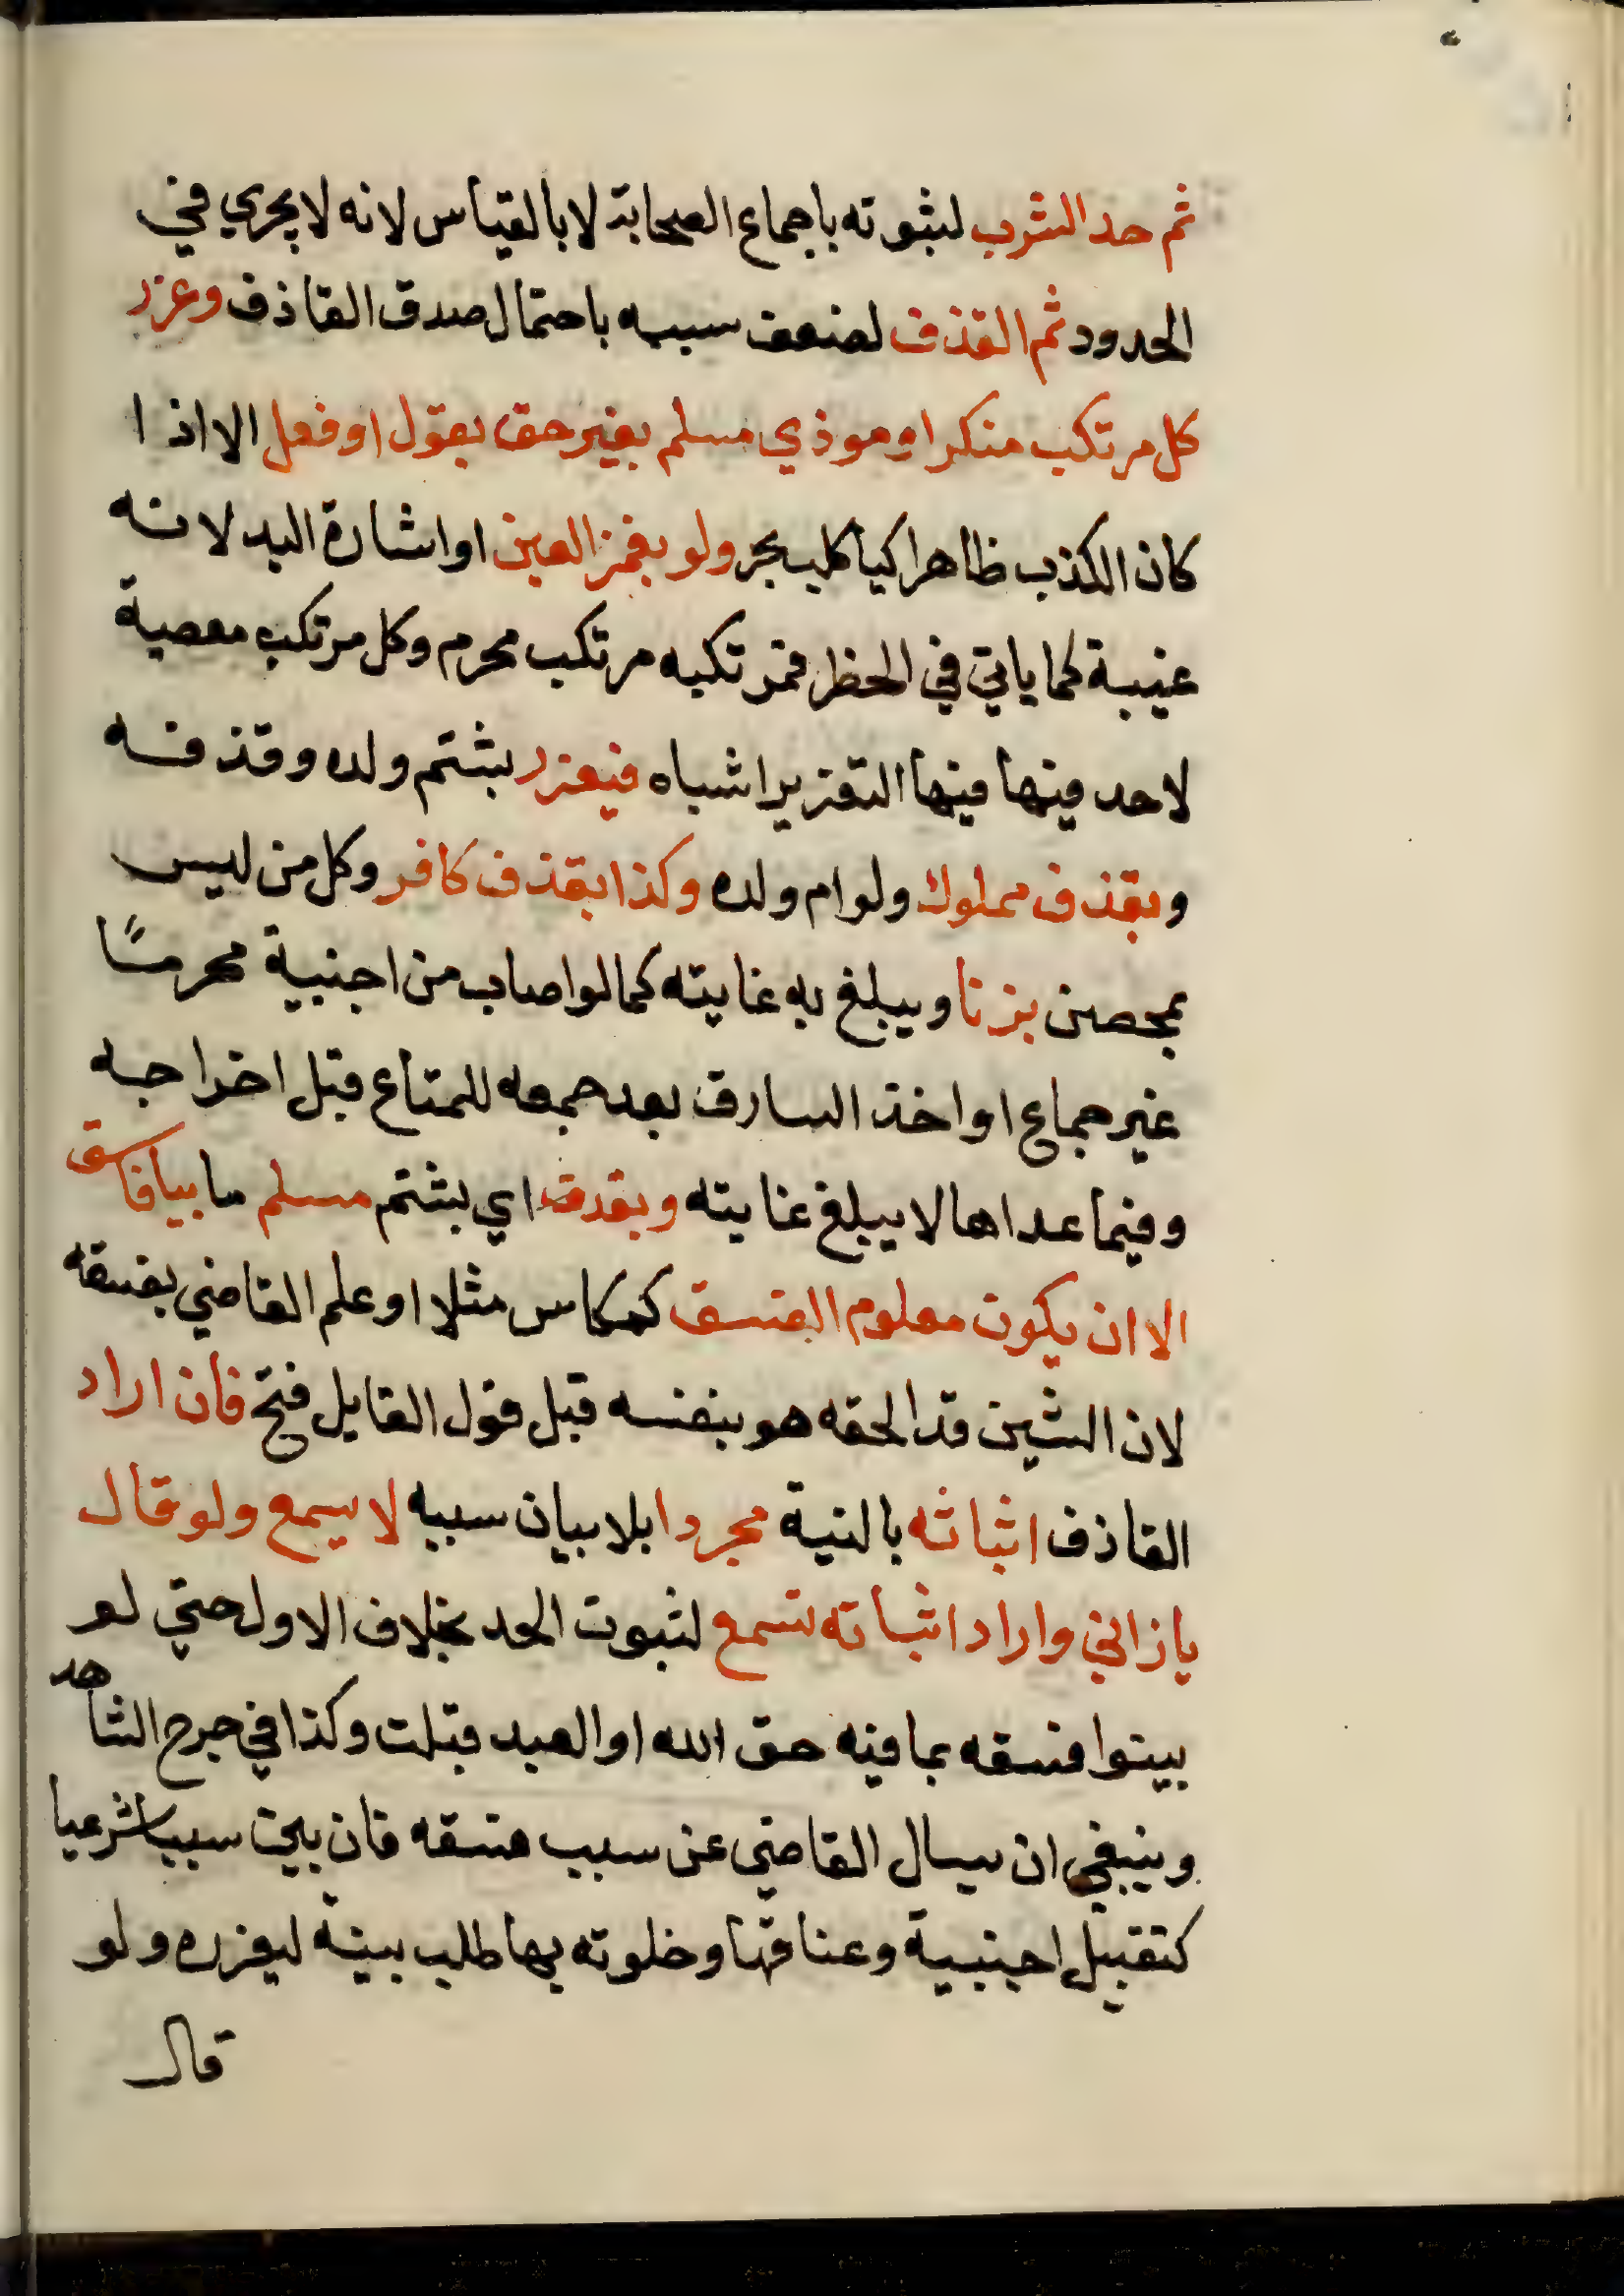 ثم حد الشرب لثبوته باجماع الصحابة لا بالقياس لانه لا يجري في
الحدود ثم القذف لضعف سببه باحتمال صدق القاذف وعزر
كل مرتكب منكرا وموذي مسلم بغير حق بقول او فعل الا اذا
كان الكذب ظاهرا كيا كلب بحر ولو بغمز العين او اشارة اليد لانه
غيبة كما ياتي في الحظر فمرتكبه مرتكب محرم وكل مرتكب معصية
لا حد فيها فيها التعزير اشباه فيعزر بشتم ولده وقذفه
وبقذف مملوك ولو ام ولده وكذا بقذف كافر وكل من ليس
بمحصن بزنا ويبلغ به غايته كما لو اصاب من اجنبية محرمًا
غير جماع او اخذ السارق بعد جمعه للمتاع قبل اخراجه
وفيما عداها لا يبلغ غايته وبقذف اي بشتم مسلم ما بيا فاسق
الا ان يكون معلوم الفسق كمكاس مثلا او علم القاضي بفسقه
لان الشين قد الحقه هو بنفسه قبل قول القايل فتح فان اراد
القاذف اثباته بالنية مجردا بلا بيان سببه لا يسمع ولو قال
يا زاني واراد اثباته تسمع لثبوت الحد بخلاف الاول حتي لو
بينوا فسقه بما فيه حق الله او العبد قبلت وكذا في جرح الشاهد
وينبغي ان يسال القاضي عن سبب فسقه فان بين سببا شرعيا
كتقبيل اجنبية وعناقها وخلوته بها طلب بينة ليعزره ولو
قال